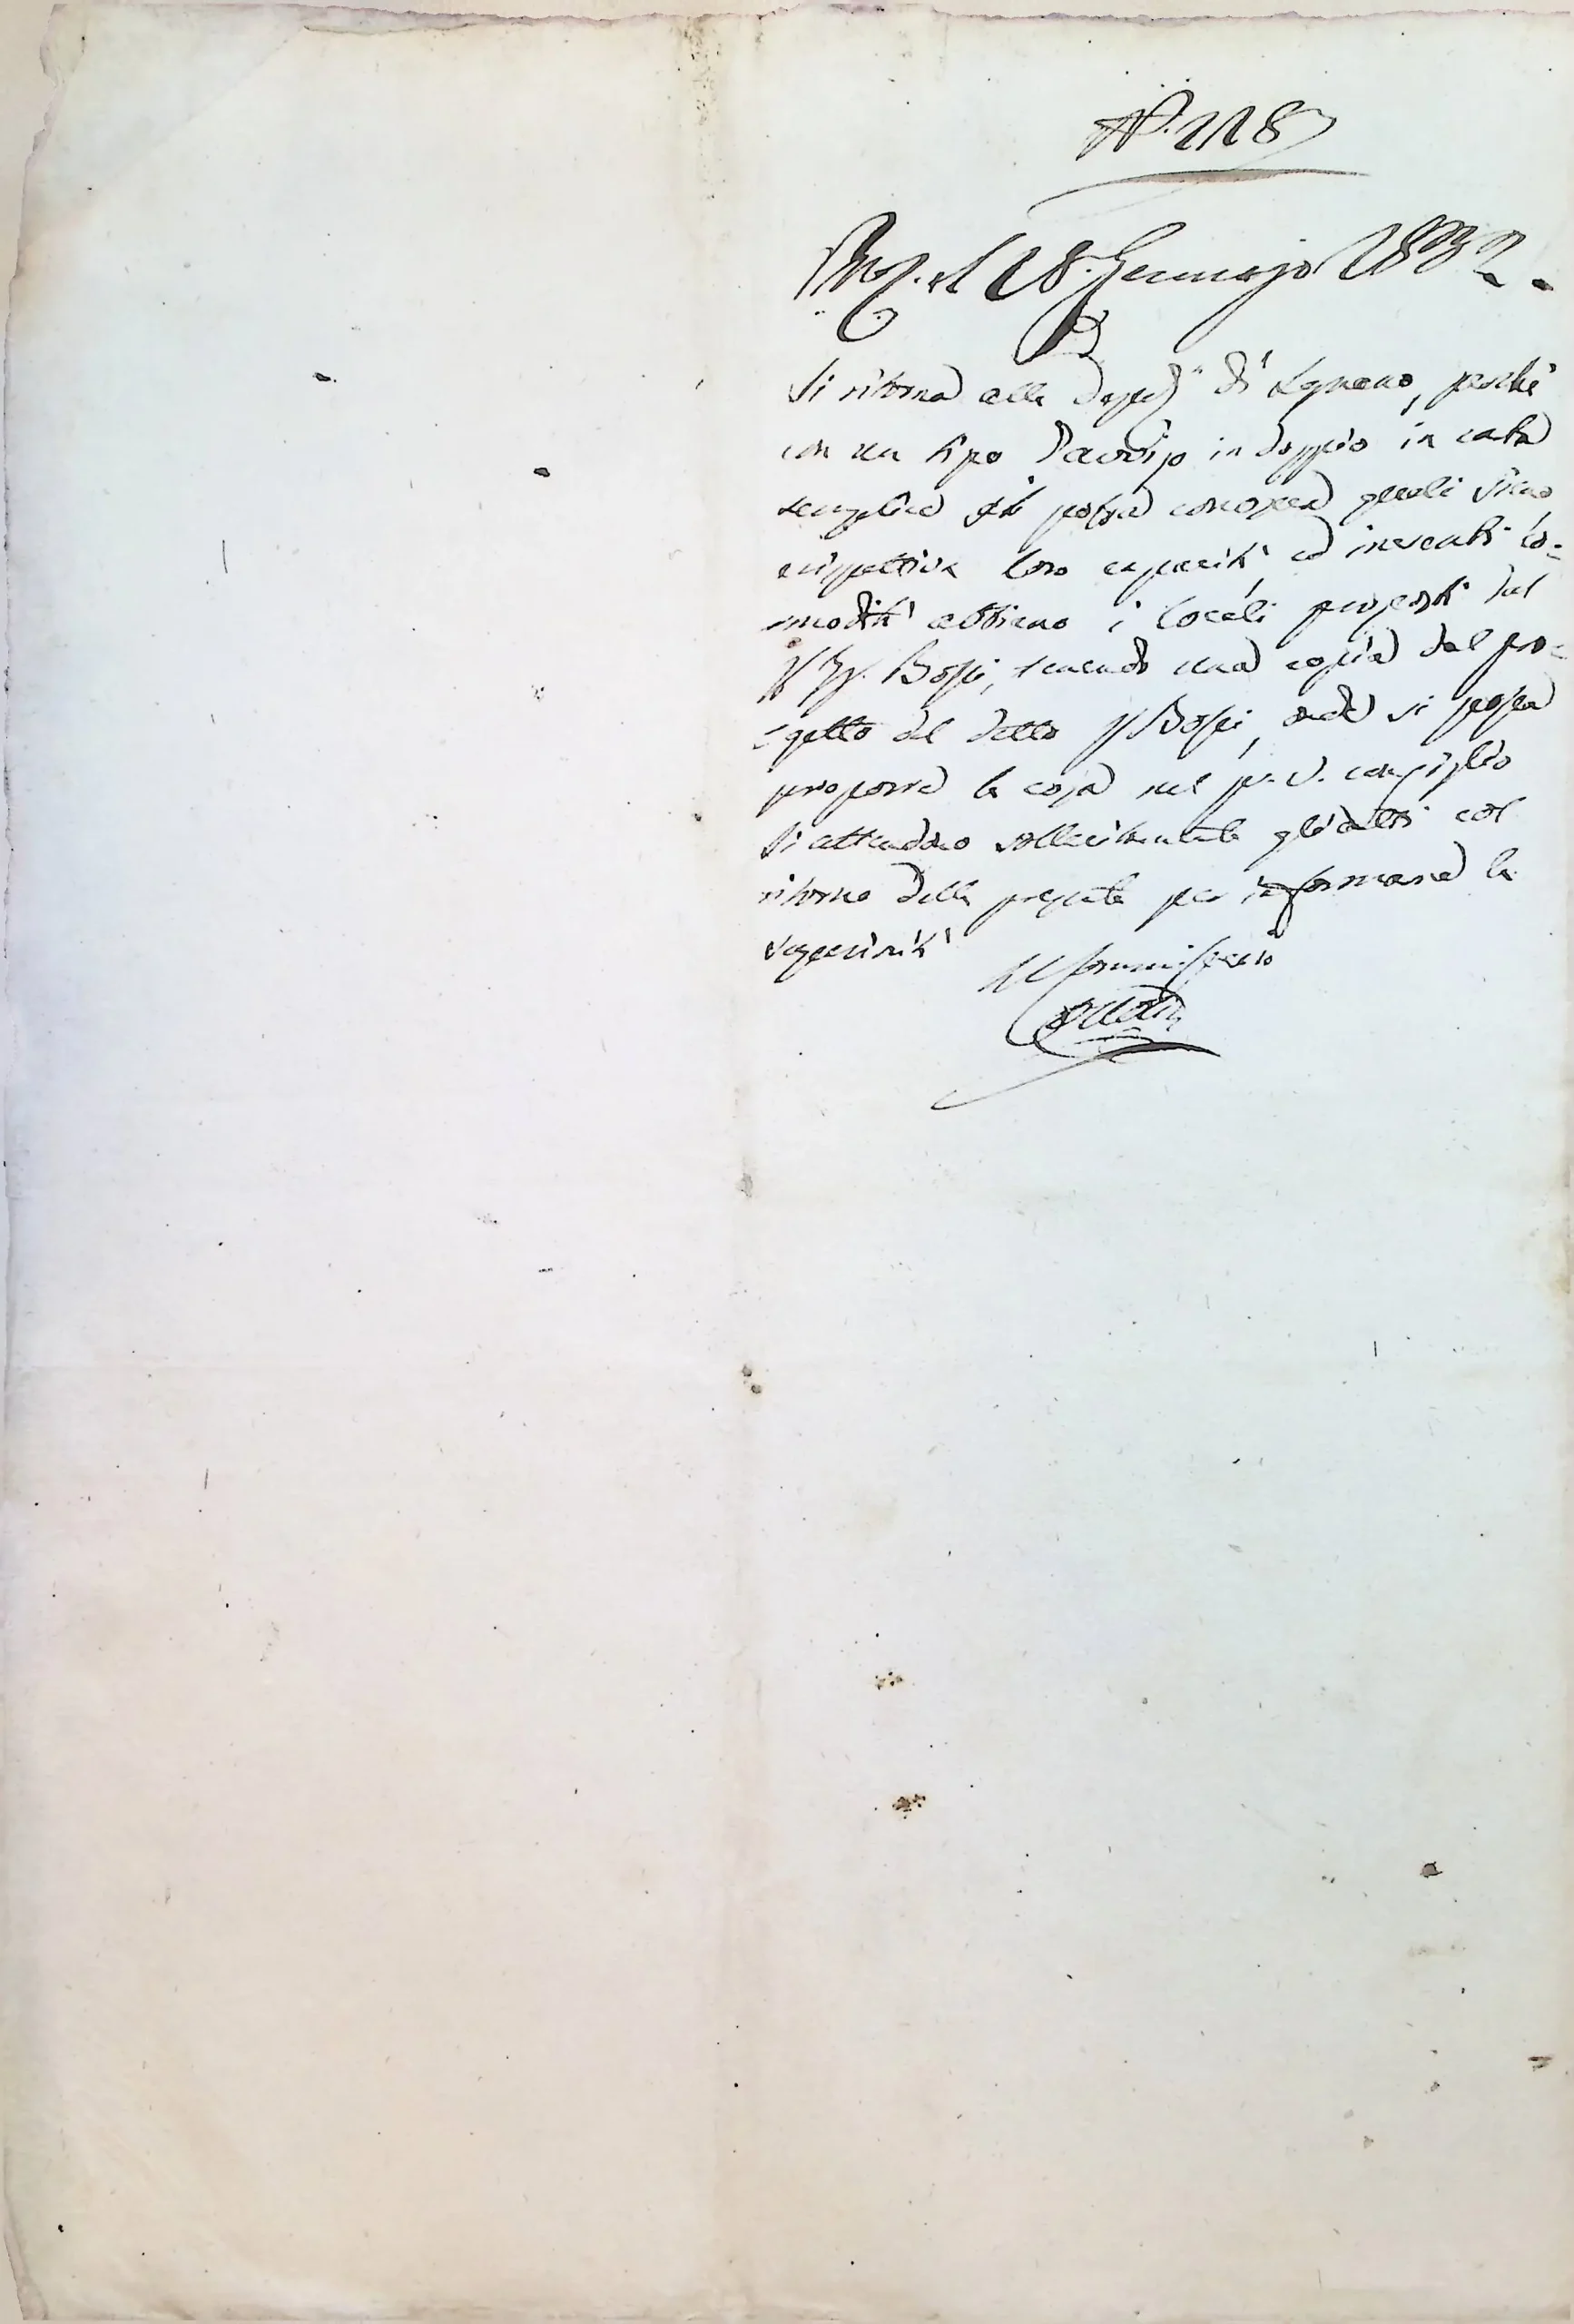 N. 118
il 18. Gennajo 1832.
Si ritorna alla di Legnano, perchè
con un tipo in doppio in carta
semplice si possa conoscere quali siano
loro capacità ed inerenti co=
modità abbiano i locali proposti dal
Bossi, una copia del pro=
=getto del detto Bossi, onde si possa
proporre la cosa nel consiglio
Si attendono sollecitamente gli atti col
ritorno della presente per informare la
superiorità
Il Commissario